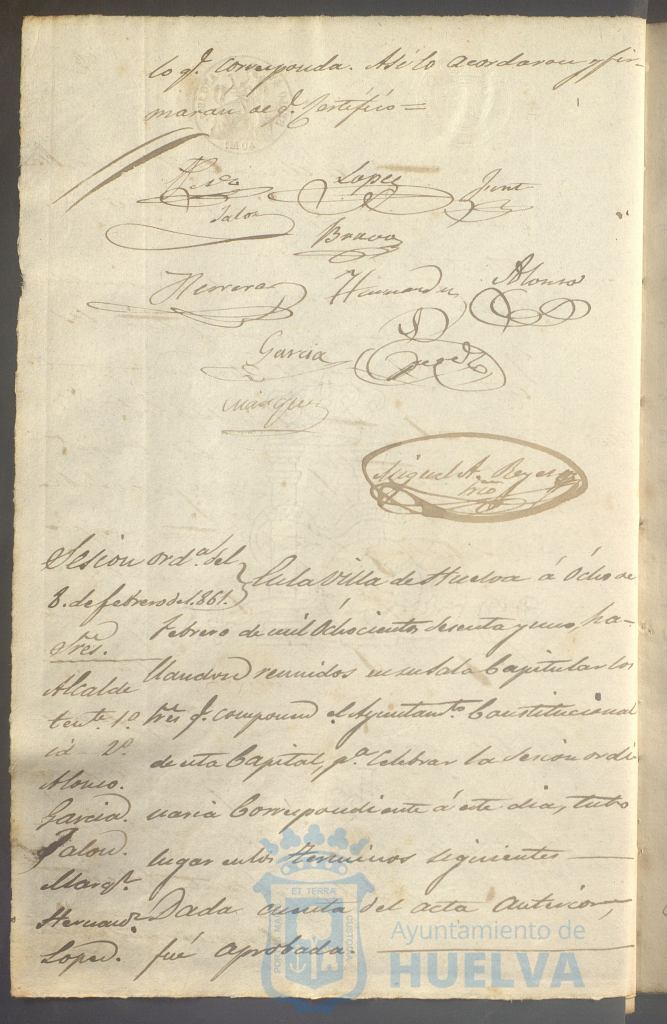 lo qᵉ. corresponda. Asi lo acordaron y fir-
maran de qᵉ. Certifico =
Lopez
Jalon
Bravo
Herrera Hernandez Alonso
Garcia
Marquez
Miguel A. Reyes
Srio
Sesion ordª. del
8. de febrero de 1.861.
Sres.
Alcalde
tente. 1º
id 2º
Alonso.
Garcia.
Jalon.
Marqz.
Hernandz.
Lopez.
En la Villa de Huelva á Ocho de
Febrero de mil Ochocientos sesenta y uno, ha-
llandose reunidos en su Sala Capitular los
Sres qᵉ. componen el Ayuntamto. Constitucional
de esta Capital, pª. Celebrar la Sesion ordi-
naria Correspondiente á este dia, tubo
lugar en los terminos siguientes —
Dada cuenta del acta anterior,
fué aprobada. —
ET TERRA
Ayuntamiento de
HUELVA